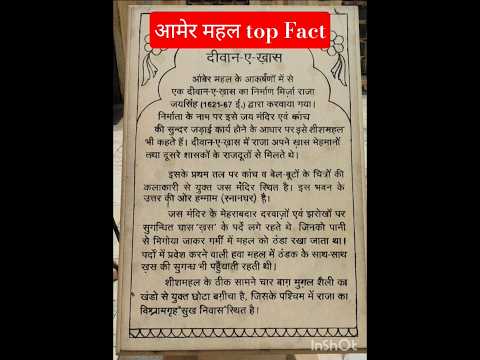 आमेर महल top Fact
दीवान-ए-ख़ास
आंबेर महल के आकर्षणों में से
एक दीवान-ए-ख़ास का निर्माण मिर्ज़ा राजा
जयसिंह (1621-67 ई.) द्वारा करवाया गया।
निर्माता के नाम पर इसे जय मंदिर एवं कांच
की सुन्दर जड़ाई कार्य होने के आधार पर इसे शीशमहल
भी कहते हैं। दीवान-ए-ख़ास में राजा अपने ख़ास मेहमानों
तथा दूसरे शासकों के राजदूतों से मिलते थे।
इसके प्रथम तल पर कांच व बेल-बूटों के चित्रों की
कलाकारी से युक्त जस मंदिर स्थित है। इस भवन के
उत्तर की ओर हम्माम (स्नानघर) है।
जस मंदिर के मेहराबदार दरवाज़ों एवं झरोखों पर
सुगन्धित घास 'ख़स' के पर्दे लगे रहते थे, जिनको पानी
से भिगोया जाकर गर्मी में महल को ठंडा रखा जाता था।
पर्दो में प्रवेश करने वाली हवा महल में ठंडक के साथ-साथ
ख़स की सुगन्ध भी पहुँचाती रहती थी।
शीशमहल के ठीक सामने चार बाग़ मुग़ल शैली का
खंडो से युक्त छोटा बग़ीचा है, जिसके पश्चिम में राजा का
विश्रामगृह "सुख निवास" स्थित है।
InShOt